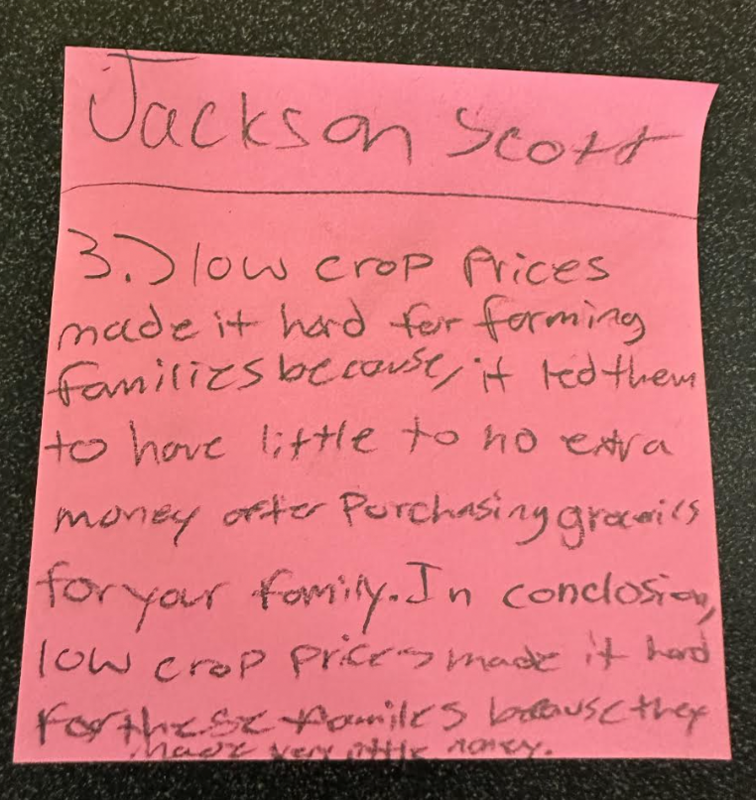 Jackson Scott
3.) low crop prices
made it hard for farming
families because, it led them
to have little to no extra
money after purchasing groceries
for your family. In conclusion,
low crop prices made it hard
for these families because they
made very little money.